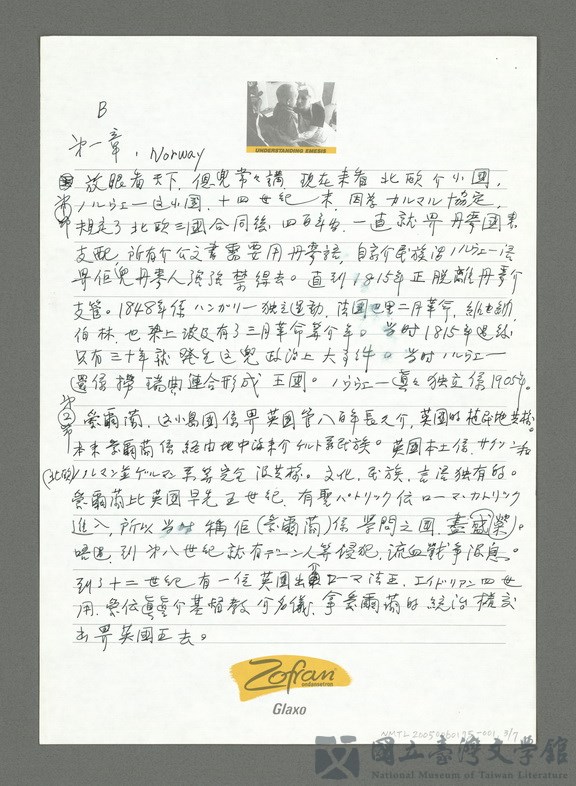 B
UNDERSTANDING EMESIS
第一章, Norway
放眼看天下, 但兜常々講, 現在来看 北欧介小國,
ノルウェー這小国, 十四世紀 末, 因為 カルマル 協定,
規定了 北欧三國合同後, 四百年 一直 就畀丹麥國来
支配, 所有介公文書需要用丹麥語, 自家介民族語 ノルウェー语
畀佢兜丹麥人強強禁得去。直到1815年正脫離丹麥介
支管。1848年係ハンガリー独立運動, 法國巴里二月革命, 維也納,
伯林, 也染上波及有了三月革命等介年。当時1815年過後
只有三十年就發生這兜政治上大事件。当時ノルウェー
還係攬瑞典連合形成王國。ノルウェー真々独立係1905年。
第②節
愛爾蘭, 這小島國係畀英國管八百年長之介, 英國的植民地共様。
本来愛爾蘭係経由地中海来介ケルト系民族。英國本土係サクソン和
(北欧)ノルマン 並ゲルマン系等完全没共様。文化, 民族, 言语独有的。
愛爾蘭比英國早先五世紀, 有聖パトリック伝ローマ・カトリック
進入, 所以当時稱佢(愛爾蘭)係學問之國, 盡盛榮。
唔過, 到第八世紀就有デーン人等侵犯, 流血戰爭没息。
到了十二世紀有一位英國出身ローマ法王, エイドリアン四世
用 愛位眞空介基督教介名儀, 拿愛爾蘭的統治權交
出畀英國王去。
Zofran
ondansetron
Glaxo
NMTL20050060125-001 3/7
國立臺灣文學館
National Museum of Taiwan Literature